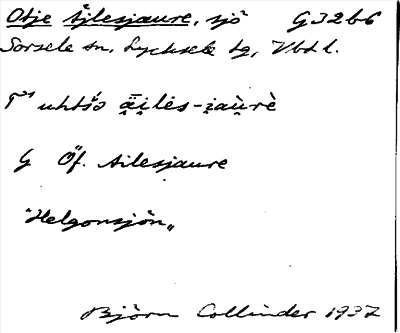 Otje Äjlesjaure, sjö G32b6
Sorsele sn, Lycksele lg, Vbtl.
uhtsə äi̯les-i̯aùrè
G Öf. Ailesjaure
"Helgonsjön„
Björn Collinder 1937